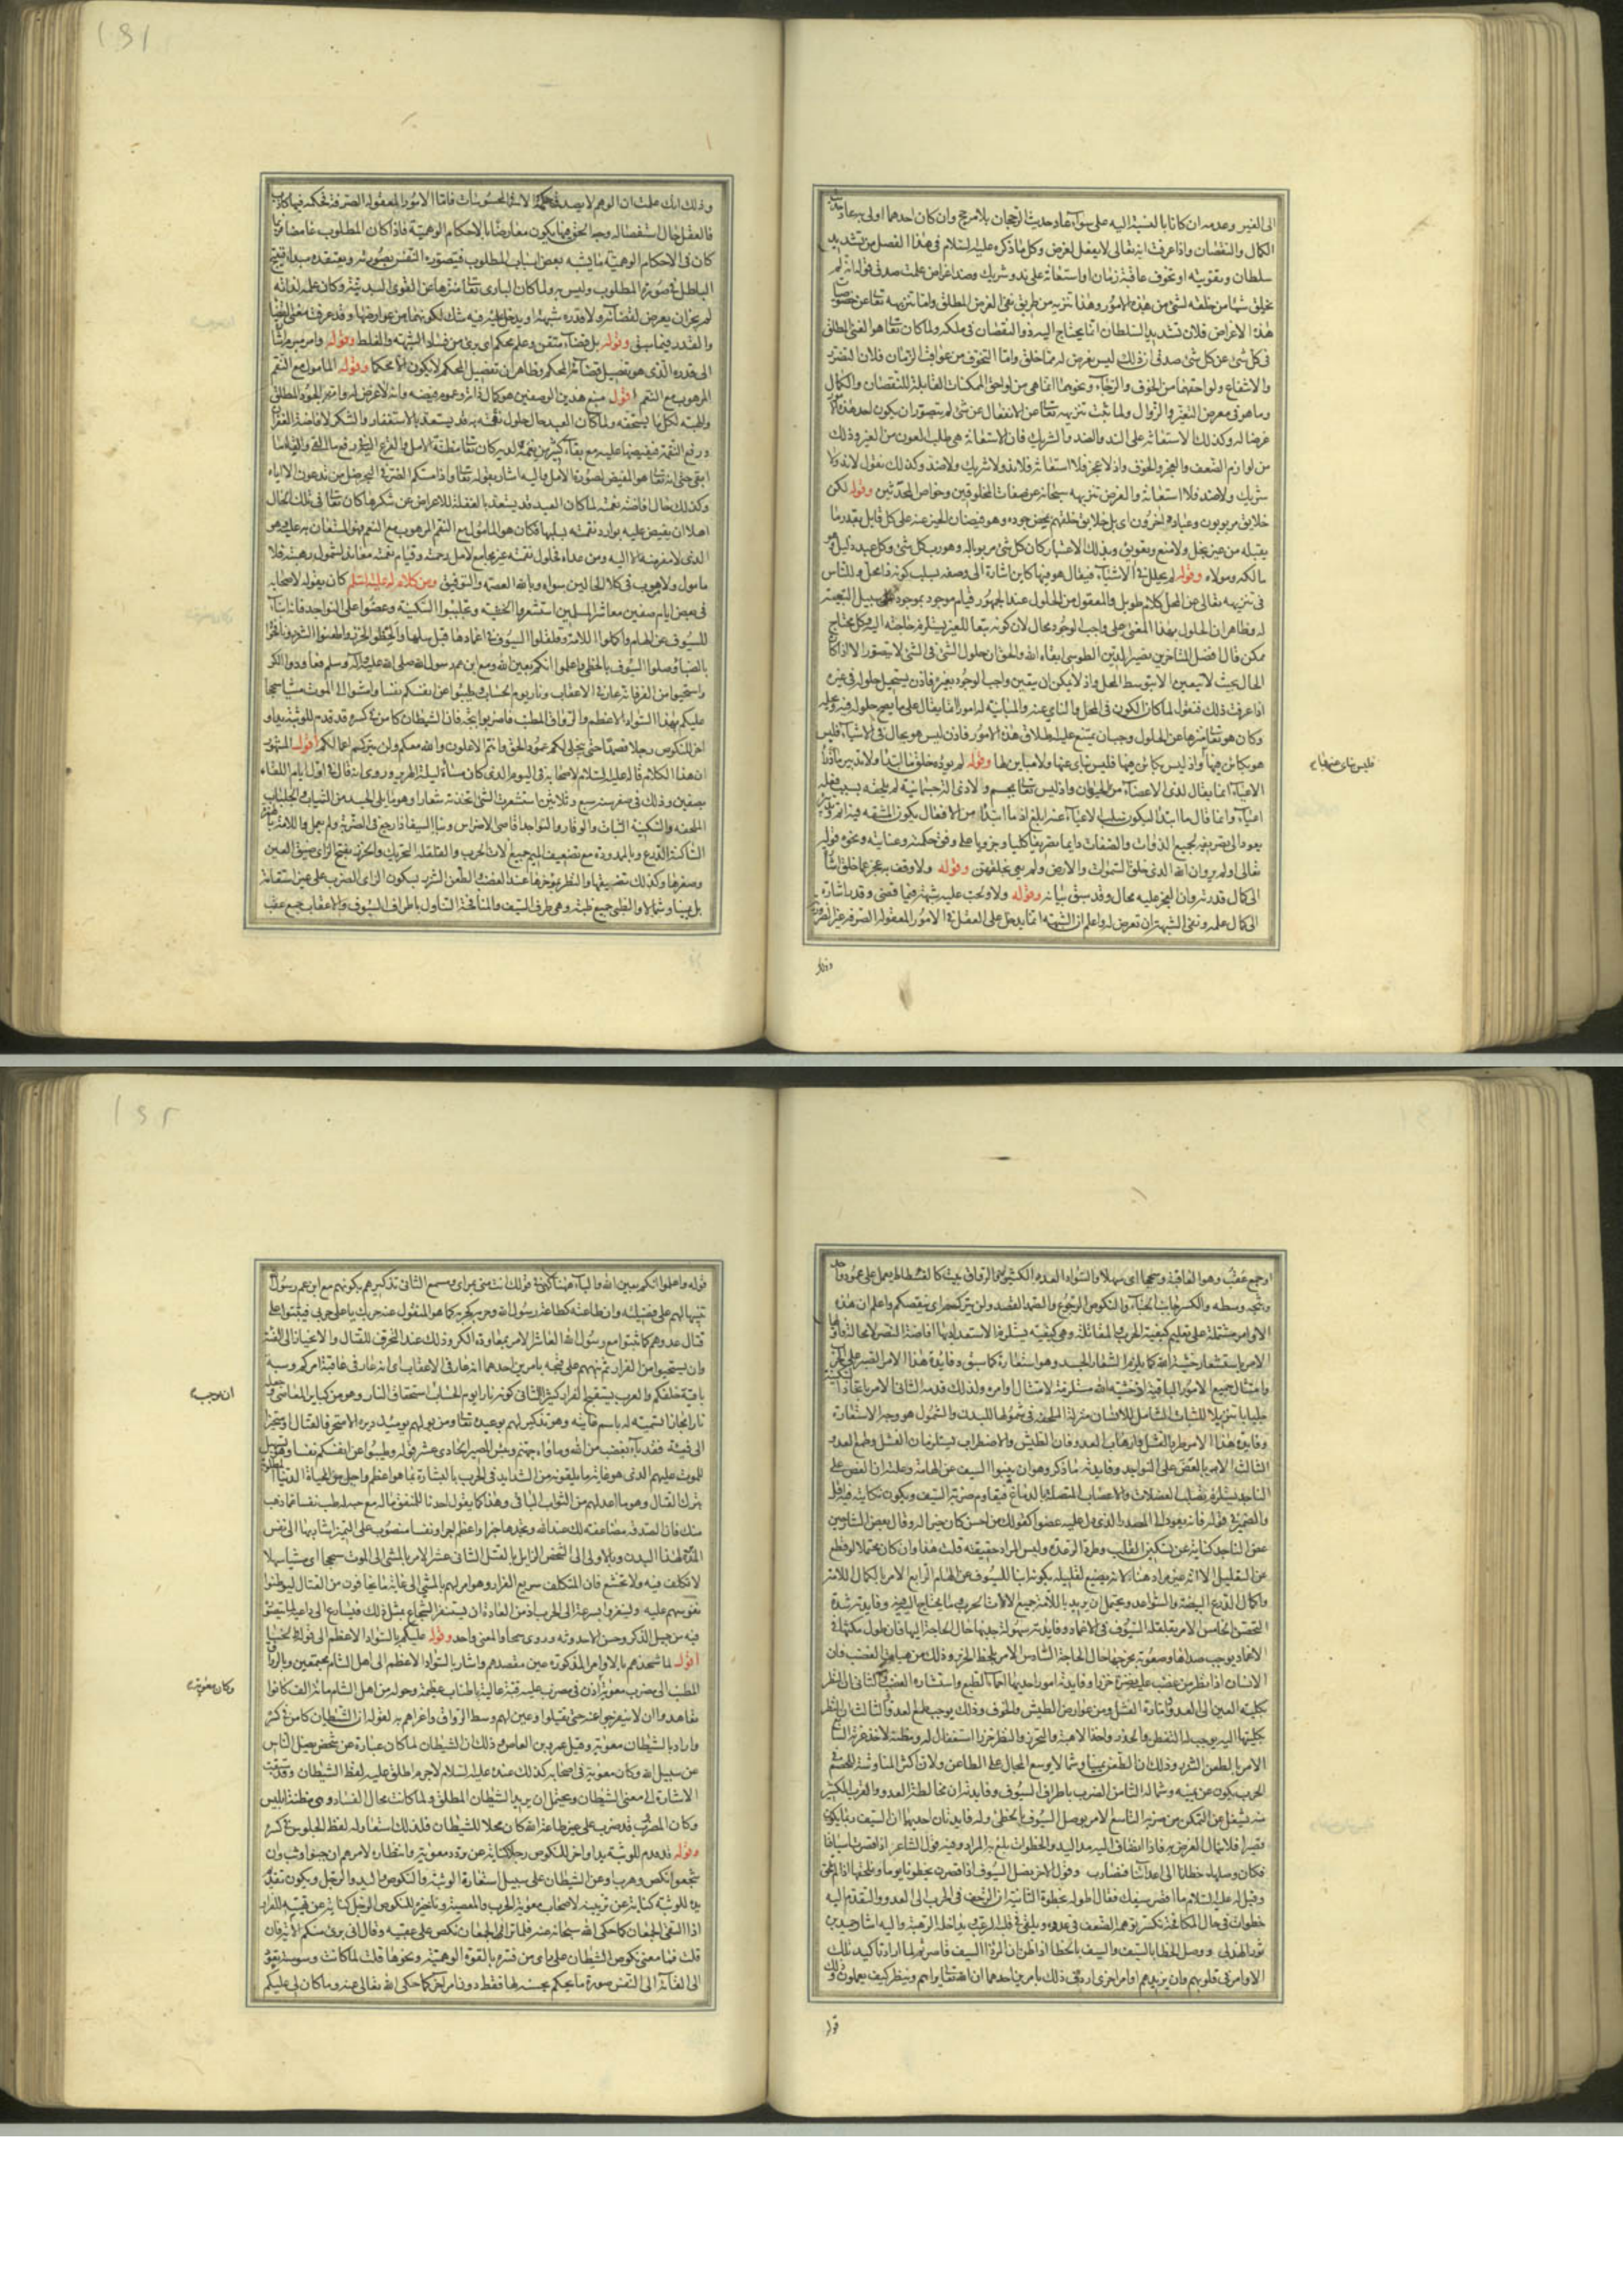 الى الغير وعدمه ان كانا بالنسبة اليه على سواء عاد حديث الترجيح بلا مرجح وان كان احدهما اولى به عاد حديث
الكمال والنقصان واذا عرفت انه تعالى لا يفعل لغرض وكل ما ذكره عليه السلام فى هذا الفصل من تشديد
سلطان وتقويته او تخوف عاقبة زمان او استعانة على ند وشريك وضد اغراض علمت صدق قوله انه لم
يخلق شيئا من خلقه لشئ من هذه الامور وهذا تنزيه من طريق نفى الغرض المطلق واما تنزيهه تعالى عن خصوصيات
هذه الاغراض فلان تشديد السلطان انما يحتاج اليه ذو النقصان فى ملكه ولما كان تعالى هو الغنى المطلق
فى كل شئ عن كل شئ صدق ان ذلك ليس بغرض له مما خلق واما التخوف من عواقب الزمان فلان التضرر
والانتفاع ولواحقهما من الخوف والرجاء ونحوهما انما هى من لواحق الممكنات القابلة للنقصان والكمال
وما هو فى معرض التغير والزوال ولما ثبت تنزيهه تعالى عن الانفعال عن شئ لم يتصور ان يكون احد هذه الامور
غرضا له وكذلك الاستعانة على الند والضد والشريك فان الاستعانة هى طلب العون من الغير وذلك
من لوازم الضعف والعجز والخوف واذ لا عجز فلا استعانة فلا ند ولا شريك ولا ضد وكذلك نقول لا ند ولا
شريك ولا ضد فلا استعانة والغرض تنزيهه سبحانه عن صفات المخلوقين وخواص المحدثين وقوله لكن
خلايق مربوبون وعباد داخرون اى بل خلايق خلقهم بمحض جوده وهو فيضان الخير عنه على كل قابل بقدر ما
يقبله من غير بخل ولا منع وتعويق وبذلك الاعتبار كان كل شئ مربوبا له وهو رب كل شئ وكل عبد ذليل فهو
مالكه ومولاه وقوله لم يحلل فى الاشياء فيقال هو فيها كاين اشارة الى وصفه بسلب كونه ذا محل وللناس
فى تنزيهه تعالى عن المحل كلام طويل والمعقول من الحلول عند الجمهور قيام موجود بموجود على سبيل التبعية
له وظاهر ان الحلول بهذا المعنى على واجب الوجود محال لان كونه تبعا للغير يستلزم حاجته اليه وكل محتاج
ممكن قال افضل المتاخرين نصير الدين الطوسى ابقاه الله والحق ان حلول الشئ فى الشئ لا يتصور الا اذا كان
الحال بحيث لا يتعين الا بتوسط المحل واذ لا يمكن ان يتعين واجب الوجود بغيره فاذن يستحيل حلوله فى غيره
اذا عرفت ذلك فنقول لما كان الكون فى المحل والنأى عنه والمباينة له امورا انما يقال على ما يصح حلوله فيه
وكان هو تعالى منزها عن الحلول وجب ان يمتنع عليه اطلاق هذه الامور فاذن ليس هو بحال فى الاشياء فليس
هو بكاين فيها واذ ليس بكاين فيها فليس بنائ عنها ولا مباين لها وقوله لم يؤده خلق ما ابتدأ ولا تدبير ما ذرأ
الاعياء انما يقال لذى الاعضاء من الحيوان واذ ليس تعالى بجسم ولا ذى آلة جسمانية لم يلحقه بسبب فعله
اعياء وانما قال ما ابتدأ ليكون سلب الاعياء عنه ابلغ اذ ما ابتدأ من الافعال يكون المشقة فيه اتم
يعود الى تصريفه لجميع الذوات والصفات دايما تصريفا كليا وجزويا على وفق حكمته وعنايته ونحوه قوله
تعالى اولم يروا ان الله الذى خلق السموات والارض ولم يعى بخلقهن وقوله ولا وقف به عجز عما خلق اشارة
الى كمال قدرته وان العجز عليه محال وقد سبق بيانه وقوله ولا ولجت عليه شبهة فيما قضى وقدر اشارة
الى كمال علمه ونفى الشبهة ان تعرض له واعلم ان الشبهة انما يدخل على العقل فى الامور المعقولة الصرفة غير الضرورية
وذلك
فليس بنائ عنها
وذلك انك علمت ان الوهم لا يصدق حكمه الا فى المحسوسات فاما الامور المعقولة الصرفة فحكمه فيها كاذب
فالعقل حال استفصاله وجه الحق فيها يكون معارضا بالاحكام الوهمية فاذا كان المطلوب غامضا فربما
كان فى الاحكام الوهمية ما يشبه بعض اسباب المطلوب فيتصوره النفس بصورته ويعتقده مبدأ فينتج
الباطل فى صورة المطلوب وليس به ولما كان البارى تعالى منزها عن القوى البدنية وكان علمه لذاته
لم يجز ان يعرض لقضائه ولا قدره شبهة او يدخل عليه فيه شك لكونهما من عوارضها وقد عرفت معنى القضا
والقدر فيما سبق وقوله بل قضاء متقن وعلم محكم اى برئ من فساد الشبهة والغلط وقوله وامر مبرم اشارة
الى قدره الذى هو تفصيل قضائه المحكم وظاهر ان تفصيل المحكم لا يكون الا محكما وقوله المامول مع النقم
المرهوب مع النعم اقول منبع هذين الوصفين هو كمال ذاته وعموم فيضه وانه لا غرض له وانه الجود المطلق
والهبة لكل ما يستحقه ولما كان العبد حال حلول نقمته به قد يستعد بالاستغفار والشكر لافاضة الغفران
ورفع النقمة فيفيضها عليه مع بقاء كثير من نعمه لديه كان تعالى مظنة الامل والفزع اليه فى رفع ما القى وابقاء ما
ابقى حتى انه تعالى هو المفيض لصورة الامل واليه اشار بقوله تعالى واذا مسكم الضر فى البحر ضل من تدعون الا اياه
وكذلك حال افاضة نعمته لما كان العبد قد يستعد بالغفلة للاعراض عن شكرها كان تعالى فى تلك الحال
اهلا ان يفيض عليه بوادر نقمته بسلبها فكان هو المامول مع النقم المرهوب مع النعم فهو المستعان به عليه وهو
الذى لا مفر منه الا اليه ومن عداه فحلول نقمته غير مجامع لامل رحمته وقيام نعمته معاند لشمول رهبته فلا
مامول ولا مرهوب فى كلا الحالين سواه وبالله العصمة والتوفيق ومن كلام له عليه السلم كان يقوله لاصحابه
فى بعض ايام صفين معاشر المسلمين استشعروا الخشية وتجلببوا السكينة وعضوا على النواجذ فانه انبأ
للسيوف عن الهام واكملوا اللامة وقلقلوا السيوف فى اغمادها قبل سلها والحظوا الخزر واطعنوا الشزر ونافحوا
بالظبا وصلوا السيوف بالخطى واعلموا انكم بعين الله ومع ابن عم رسول الله صلى الله عليه وآله وسلم فعاودوا الكر
واستحيوا من الفر فانه عار فى الاعقاب ونار يوم الحساب وطيبوا عن انفسكم نفسا وامشوا الى الموت مشيا سجحا
عليكم بهذا السواد الاعظم والرواق المطنب فاضربوا ثبجه فان الشيطان كامن فى كسره قد قدم للوثبة يدا و
اخر للنكوص رجلا فصمدا صمدا حتى ينجلى لكم عمود الحق وانتم الاعلون والله معكم ولن يتركم اعمالكم اقول المشهور
ان هذا الكلام قاله عليه السلام لاصحابه فى اليوم الذى كان مساؤه ليلة الهرير وروى انه قاله فى اول ايام اللقاء
بصفين وذلك فى صفر سنة سبع وثلاثين استشعرت الشئ اتخذته شعارا وهو ما يلى الجسد من الثياب والجلباب
الملحفة والسكينة الثبات والوقار والنواجذ اقاصى الاضراس ونبا السيف اذا رجع فى الضربة ولم يعمل واللامة بالهمزة
الساكنة الدرع وبالممدودة مع تضعيف الميم جميع آلات الحرب والقلقلة التحريك والخزر بفتح الزاى ضيق العين
وصغرها وكذلك تضييقها والنظر بمؤخرها عند الغضب والطعن الشزر بسكون الزاى الضرب على غير استقامة
بل يمينا وشمالا والظبى جمع ظبة وهى طرف السيف والمنافحة التناول باطراف السيوف والاعقاب جمع عقب
او جمع عقب وهو العاقبة وسجحا اى سهلا والسواد العدد الكثير والرواق بيت كالفسطاط يحمل على عمود واحد
وثبجه وسطه والكسر جانب الخباء والنكوص الرجوع والصمد القصد ولن يتركم اى ينقصكم واعلم ان هذه
الاوامر مشتملة على تعليم كيفية الحرب والمقاتلة وهى كيفية يستلزم الاستعداد بها افاضة النصر لا محالة فاولها
الامر باستشعار خشية الله كما يلزم الشعار الجسد وهو استعارة كما سبق وفايدة هذا الامر الصبر على الحرب
وامتثال جميع الامور الباقية اذ خشية الله مستلزمة لامتثال اوامره ولذلك قدمه الثانى الامر باتخاذ السكينة
جلبابا تنزيلا للثبات الشامل للانسان منزلة الملحفة فى شمولها للبدن والشمول هو وجه الاستعارة
وفايدة هذا الامر طرد الفشل وارهاب العدو فان الطيش والاضطراب يستلزمان الفشل وطمع العدو
الثالث الامر بالعض على النواجذ وفايدته ما ذكر وهو ان ينبوا السيف عن الهامة وعلته ان العض على
الناجذ يستلزم تصلب العضلات والاعصاب المتصلة بالدماغ فيقاوم ضربة السيف ويكون نكايته فيه اقل
والضمير فى قوله فانه يعود الى المصدر الذى دل عليه عضوا كقولك من احسن كان خيرا له وقال بعض الشارحين
عض الناجذ كناية عن تسكين القلب وطرد الرعدة وليس المراد حقيقته قلت هذا وان كان محتملا لو قطع
عن التعليل الا انه غير مراد هنا لانه يضيع تعليله بكونه انبا للسيوف عن الهام الرابع الامر باكمال اللامة
واكمال الدرع البيضة والسواعد ويحتمل ان يريد باللامة جميع الالات الحرب وما يحتاج اليه فيه وفايدته شدة
التحصن الخامس الامر بقلقلة السيوف فى الاغماد وفايدته سهولة جذبها حال الحاجة اليها فان طول مكثها فى
الاغماد يوجب صداها وصعوبة مخرجها حال الحاجة السادس الامر بلحظ الخزر وذلك من هيآت الغضب فان
الانسان اذا نظر من غضب عليه نظره خزرا وفايدته امور احدها احماء الطبع واستثارة الغضب الثانى ان النظر
بكلية العين الى العدو امارة الفشل ومن عوارض الطيش والخوف وذلك يوجب طمع العدو الثالث ان النظر
بكليتها اليه يوجب له التفطن والحذر واخذ الاهبة والتحرز والنظر خزرا استغفال له ومظنة لاخذ غرته السابع
الامر بالطعن الشزر وذلك ان الطعن يمينا وشمالا يوسع المجال على الطاعن ولان اكثر المناوشة للخصم فى
الحرب يكون عن يمينه وشماله الثامن الضرب باطراف السيوف وفايدته ان مخالطة العدو والقرب الكثير
منه يشغل عن التمكن من ضربه التاسع الامر بوصل السيوف بالخطى وله فايدتان احديهما ان السيف ربما يكون
قصيرا فلا ينال الغرض به فاذا انضاف اليه مد اليد والخطوات بلغ به المراد وفيه قول الشاعر اذا قصرت اسيافنا
فكان وصلها خطانا الى اعدائنا فنضارب وقول الاخر نصل السيوف اذا قصرن بخطونا يوما ونلحقها اذا لم تلحق
وقيل له عليه السلام ما اقصر سيفك فقال اطوله بخطوة الثانية ان الزحف فى الحرب الى العدو والتقدم اليه
خطوات فى حال المكافحة يكسر توهم الضعف فى عدوه ويلقى فى قلبه الرعب ويداخله الرهبة واليه اشار حميد بن
ثور الهلالى ووصل الخطا بالسيف والسيف بالخطا اذا ظن ان المرء ذا السيف قاصر ثم لما اراد تاكيد تلك
الاوامر فى قلوبهم وان يزيدهم اوامر اخرى اردف ذلك بامرين احدهما ان الله تعالى يراهم وينظر كيف يعملون وذلك
قوله
قوله واعلموا انكم بعين الله والباء هنا كهى فى قولك انت منى بمراى ومسمع الثانى تذكيرهم بكونهم مع ابن عم رسول الله
تنبيها لهم على فضيلته وان طاعته كطاعة رسول الله وحربه كحربه كما هو المنقول عنه حربك يا على حربى فيثبتوا على
قتال عدوهم كما ثبتوا مع رسول الله العاشر الامر بمعاودة الكر وذلك عند التحرف للقتال والانحياز الى الفئة
وان يستحيوا من الفرار ثم نبههم على قبحه بامرين احدهما انه عار فى الاعقاب اى انه عار فى عاقبة امركم وسبة
باقية خلفكم والعرب يستقبح الفرار كثيرا الثانى كونه نار ايوم الحساب استحقاق النار وهو من كباير المعاصى وجعله
نارا مجازا تسمية له باسم غايته وهو تذكير لهم بوعيده تعالى ومن يولهم يومئذ دبره الا متحرفا لقتال او متحيزا
الى فئة فقد باء بغضب من الله وماواه جهنم وبئس المصير الحادى عشر قوله وطيبوا عن انفسكم نفسا وهو تسهيل
للموت عليهم الذى هو غاية ما يلقونه من الشدايد فى الحرب بالبشارة بما هو اعظم واجل من الحياة الدنيا المطلوبة
بترك القتال وهو ما اعد لهم من الثواب الباقى وهذا كما يقول احدنا للمنفق ماله مع حبه له طب نفسا عما ذهب
منك فان الصدقة مضاعفة لك عند الله وتجدها خيرا واعظم اجرا ونفسا منصوب على التميز اشار بها الى نفس
المدبرة لهذا البدن وبالاولى الى الشخص الزايل بالقتل الثانى عشر الامر بالمشى الى الموت سجحا اى مشيا سهلا
لا تكلف فيه ولا تخشع فان المتكلف سريع الفرار وهو امر لهم بالمشى الى غاية ما يخافون من القتال ليوطنوا
نفوسهم عليه وليفروا بسرعة الى الحرب اذ من العادة ان يستنفر الشجاع بمثل ذلك فيسارع الى داعيه لما يتصور
فيه من جميل الذكر وحسن الاحدوثة وروى سجحا والمعنى واحد وقوله عليكم بالسواد الاعظم الى قوله رجلا
اقول لما شحذهم بالاوامر المذكورة عين مقصدهم واشار بالسواد الاعظم الى اهل الشام مجتمعين وبالرواق
المطنب الى مضرب معوية اذ كان فى مضرب عليه قبة عالية باطناب عظيمة وحوله من اهل الشام مائة الف كانوا
تعاهدوا ان لا يتفرجوا عنه حتى يقتلوا وعين لهم وسط الرواق واغراهم به لقوله ان الشيطان كامن فى كسره
واراد بالشيطان معوية وقيل عمرو بن العاص وذلك ان الشيطان لما كان عبارة عن شخص يضل الناس
عن سبيل الله وكان معوية فى اصحابه كذلك عنده عليه السلام لاجرم اطلق عليه لفظ الشيطان وقد سبقت
الاشارة الى معنى الشيطان ويحتمل ان يريد الشيطان المطلق ولما كانت محال الفساد هى مظنة ابليس
وكان المضروب قد ضرب على غير طاعة الله كان محلا للشيطان فلذلك استعار له لفظ الجلوس فى كسره
وقوله قد قدم للوثبة يدا واخر للنكوص رجلا كناية عن تردد معوية وانتظاره لامرهم ان جبنوا وثب وان
شجعوا نكص وهرب او عن الشيطان على سبيل استعارة الوثبة والنكوص واليد والرجل ويكون تقديم
يده للوثبة كناية عن تزيينه لاصحاب معوية الحرب والمعصية وتاخيره للنكوص الرجل كناية عن تهيئه للفرار
اذا التقى الجمعان كما حكى الله سبحانه عنه فلما تراءى الجمعان نكص على عقبيه وقال انى برئ منكم الاية فان
قلت فما معنى نكوص الشيطان على راى من فسره بالقوة الوهمية ونحوها قلت لما كانت وسوسته تعود
الى القائه الى النفس صورة ما يحكم بحسنه لها فقط دون امر اخر كما حكى الله تعالى عنه وما كان لى عليكم
وكان معوية